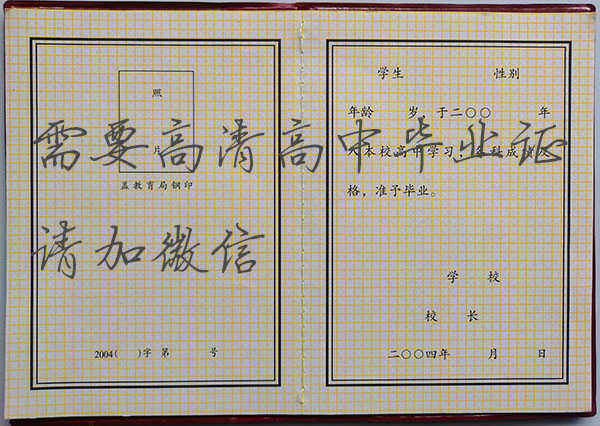 照
片
盖教育局钢印
2004( )字 第 号
学生 性别
年龄 岁 于二〇〇 年
入本校高中学习,各科成绩及
格，准予毕业。
学 校
校 长
二〇〇四年 月 日
需要高清高中毕业证
请加微信